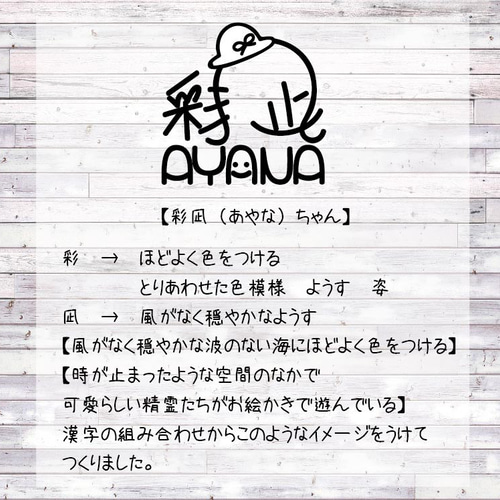 彩凪
AYANA
【彩凪（あやな）ちゃん】
彩 → ほどよく色をつける
とりあわせた色模様 ようす 姿
凪 → 風がなく穏やかなようす
【風がなく穏やかな波のない海にほどよく色をつける】
【時が止まったような空間のなかで
可愛らしい精霊たちがお絵かきで遊んでいる】
漢字の組み合わせからこのようなイメージをうけて
つくりました。